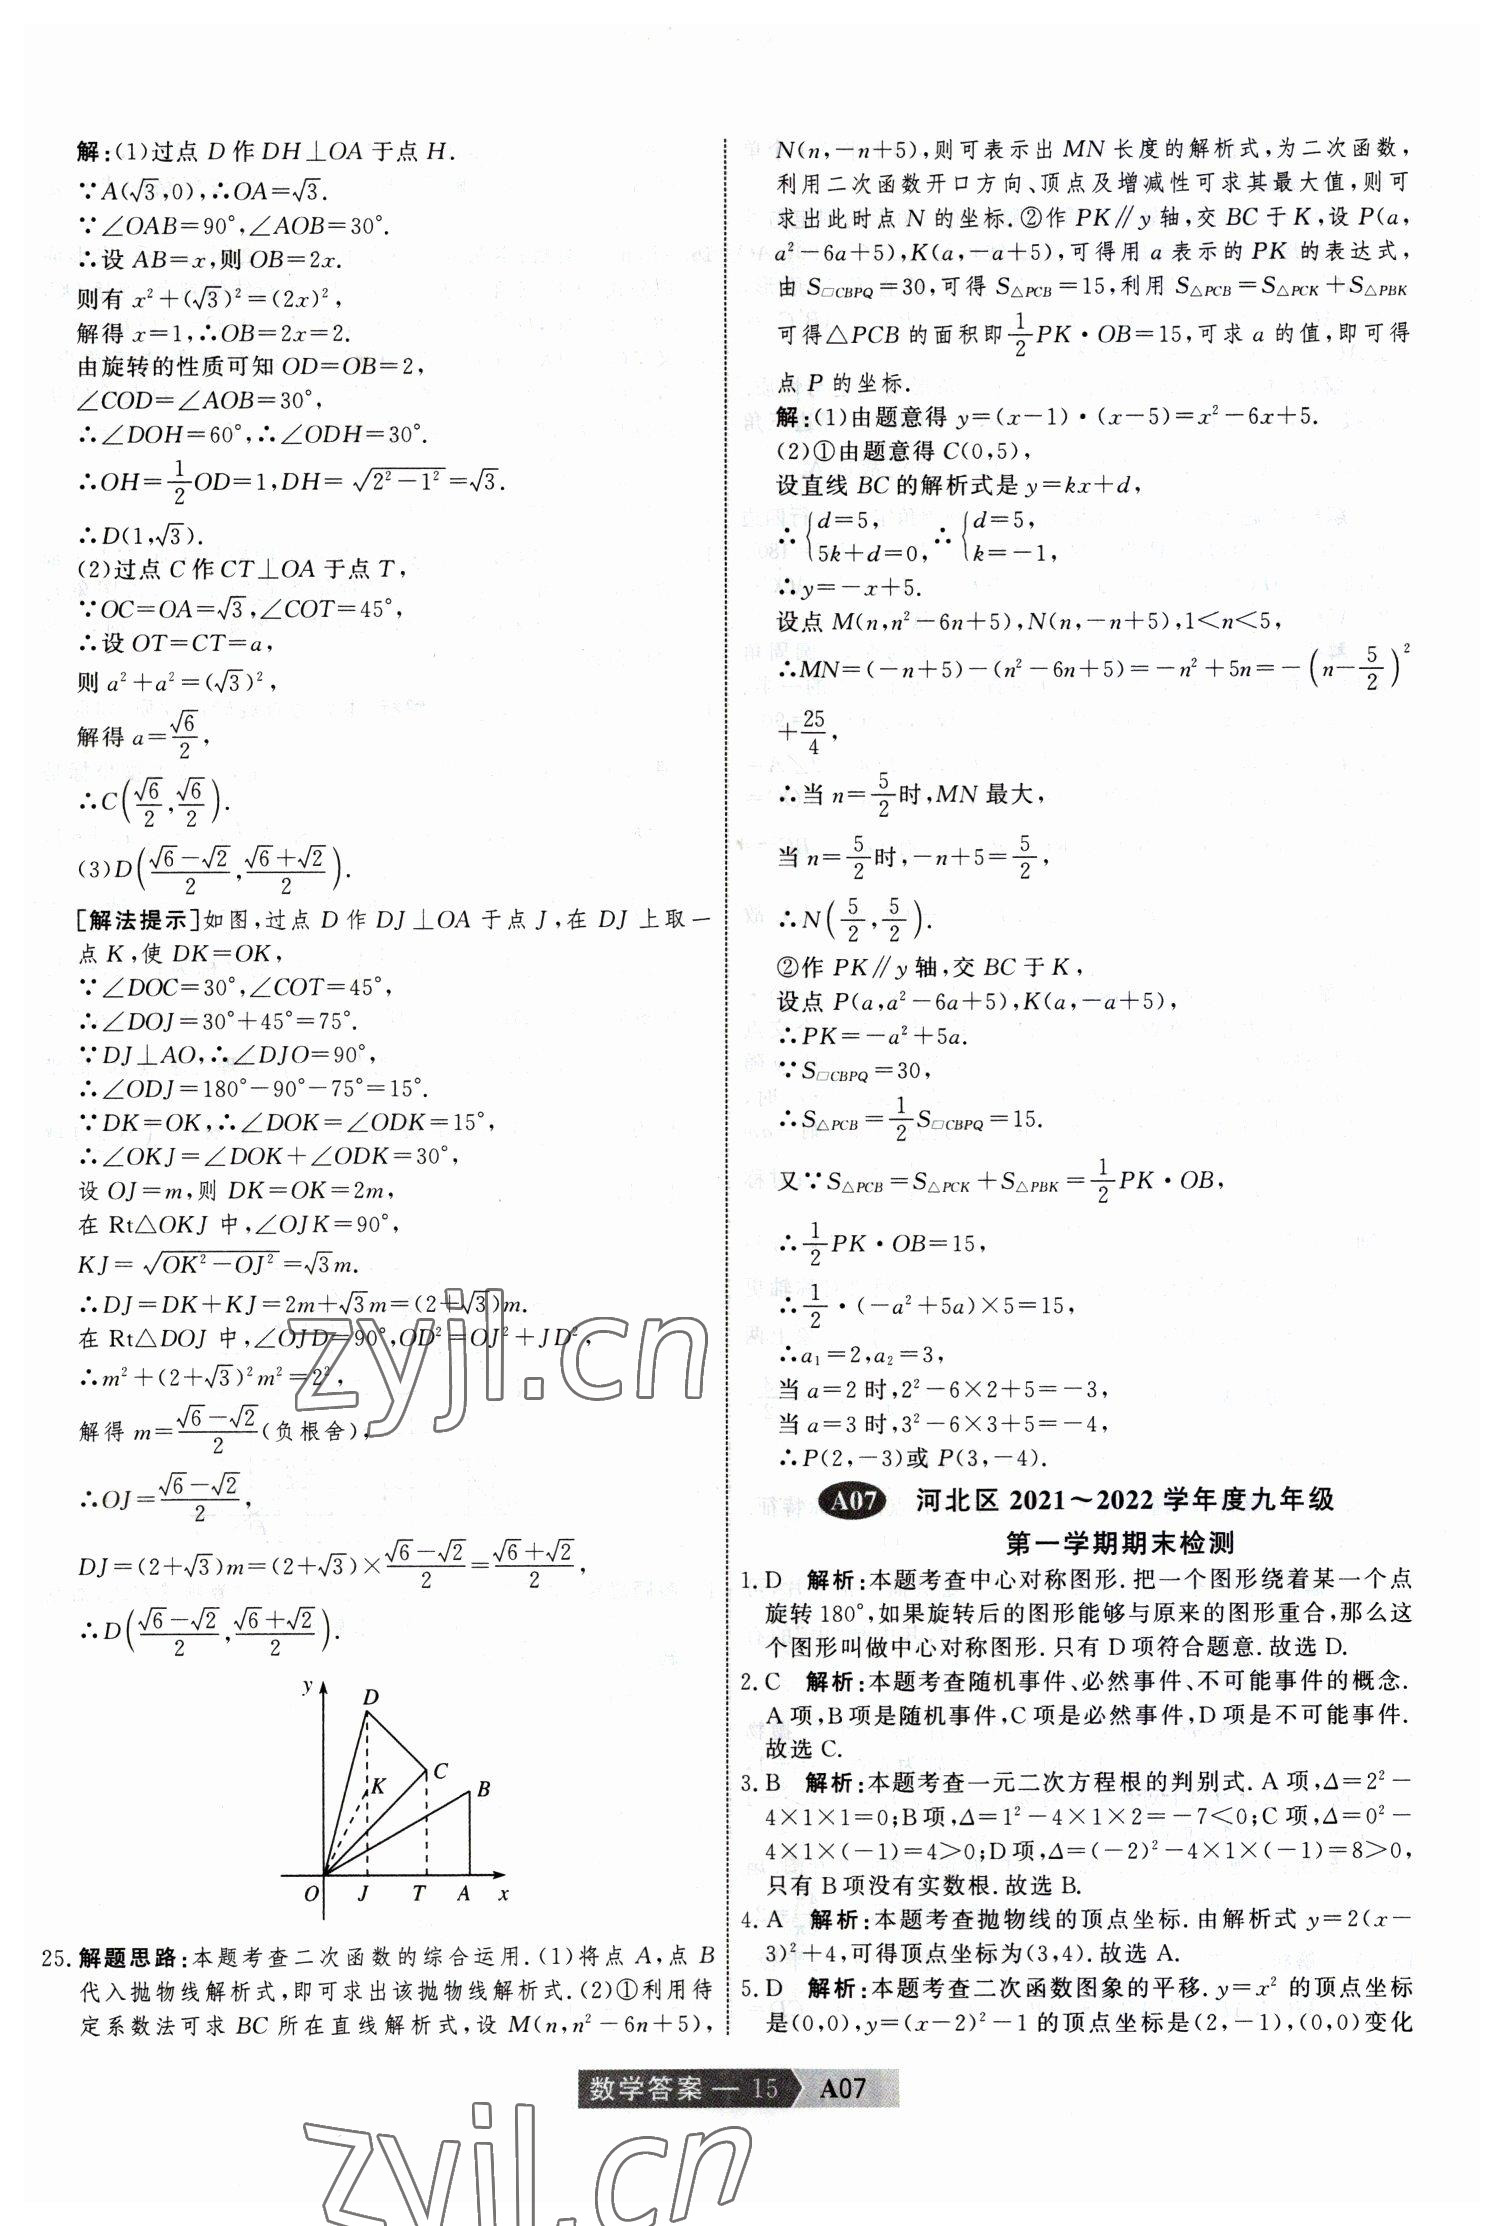 解:(1)过点 D 作 DH⊥OA 于点 H.
∵A(√3,0),∴OA=√3.
∵∠OAB=90°,∠AOB=30°.
∴设 AB=x,则 OB=2x.
则有 x²+(√3)²=(2x)²,
解得 x=1,∴OB=2x=2.
由旋转的性质可知 OD=OB=2,
∠COD=∠AOB=30°,
∴∠DOH=60°,∴∠ODH=30°.
∴OH=1/2 OD=1,DH=√(2²-1²)=√3.
∴D(1,√3).
(2)过点 C 作 CT⊥OA 于点 T,
∵OC=OA=√3,∠COT=45°,
∴设 OT=CT=a,
则 a²+a²=(√3)²,
解得 a=√6/2,
∴C(√6/2,√6/2).
(3)D((√6-√2)/2,(√6+√2)/2).
[解法提示]如图,过点 D 作 DJ⊥OA 于点 J,在 DJ 上取一
点 K,使 DK=OK,
∵∠DOC=30°,∠COT=45°,
∴∠DOJ=30°+45°=75°.
∵DJ⊥AO,∴∠DJO=90°,
∴∠ODJ=180°-90°-75°=15°.
∵DK=OK,∴∠DOK=∠ODK=15°,
∴∠OKJ=∠DOK+∠ODK=30°,
设 OJ=m,则 DK=OK=2m,
在 Rt△OKJ 中,∠OJK=90°,
KJ=√(OK²-OJ²)=√3m.
∴DJ=DK+KJ=2m+√3m=(2+√3)m.
在 Rt△DOJ 中,∠OJD=90°,OD²=OJ²+JD²,
∴m²+(2+√3)²m²=2²,
解得 m=(√6-√2)/2(负根舍),
∴OJ=(√6-√2)/2,
DJ=(2+√3)m=(2+√3)×(√6-√2)/2=(√6+√2)/2,
∴D((√6-√2)/2,(√6+√2)/2).
y
D
C
K
B
O J T A x
25. 解题思路:本题考查二次函数的综合运用.(1)将点 A,点 B
代入抛物线解析式,即可求出该抛物线解析式.(2)①利用待
定系数法可求 BC 所在直线解析式,设 M(n,n²-6n+5),
N(n,-n+5),则可表示出 MN 长度的解析式,为二次函数,
利用二次函数开口方向、顶点及增减性可求其最大值,则可
求出此时点 N 的坐标.②作 PK∥y 轴,交 BC 于 K,设 P(a,
a²-6a+5),K(a,-a+5),可得用 a 表示的 PK 的表达式,
由 S□CBPQ=30,可得 S△PCB=15,利用 S△PCB=S△PCK+S△PBK
可得△PCB 的面积即 1/2 PK·OB=15,可求 a 的值,即可得
点 P 的坐标.
解:(1)由题意得 y=(x-1)·(x-5)=x²-6x+5.
(2)①由题意得 C(0,5),
设直线 BC 的解析式是 y=kx+d,
∴{d=5, 5k+d=0, ∴{d=5, k=-1,
∴y=-x+5.
设点 M(n,n²-6n+5),N(n,-n+5),1<n<5,
∴MN=(-n+5)-(n²-6n+5)=-n²+5n=-(n-5/2)²
+25/4,
∴当 n=5/2时,MN 最大,
当 n=5/2时,-n+5=5/2,
∴N(5/2,5/2).
②作 PK∥y 轴,交 BC 于 K,
设点 P(a,a²-6a+5),K(a,-a+5),
∴PK=-a²+5a.
∵S□CBPQ=30,
∴S△PCB=1/2 S□CBPQ=15.
又∵S△PCB=S△PCK+S△PBK=1/2 PK·OB,
∴1/2 PK·OB=15,
∴1/2·(-a²+5a)×5=15,
∴a₁=2,a₂=3,
当 a=2 时,2²-6×2+5=-3,
当 a=3 时,3²-6×3+5=-4,
∴P(2,-3)或 P(3,-4).
A07 河北区 2021~2022 学年度九年级
第一学期期末检测
1. D 解析:本题考查中心对称图形.把一个图形绕着某一个点
旋转 180°,如果旋转后的图形能够与原来的图形重合,那么这
个图形叫做中心对称图形.只有 D 项符合题意.故选 D.
2. C 解析:本题考查随机事件、必然事件、不可能事件的概念.
A 项,B 项是随机事件,C 项是必然事件,D 项是不可能事件.
故选 C.
3. B 解析:本题考查一元二次方程根的判别式.A 项,Δ=2²-
4×1×1=0;B 项,Δ=1²-4×1×2=-7<0;C 项,Δ=0²-
4×1×(-1)=4>0;D 项,Δ=(-2)²-4×1×(-1)=8>0,
只有 B 项没有实数根.故选 B.
4. A 解析:本题考查抛物线的顶点坐标.由解析式 y=2(x-
3)²+4,可得顶点坐标为(3,4).故选 A.
5. D 解析:本题考查二次函数图象的平移.y=x² 的顶点坐标
是(0,0),y=(x-2)²-1 的顶点坐标是(2,-1),(0,0)变化
数学答案 — 15 A07
zyjl.cn
zyjl.cn